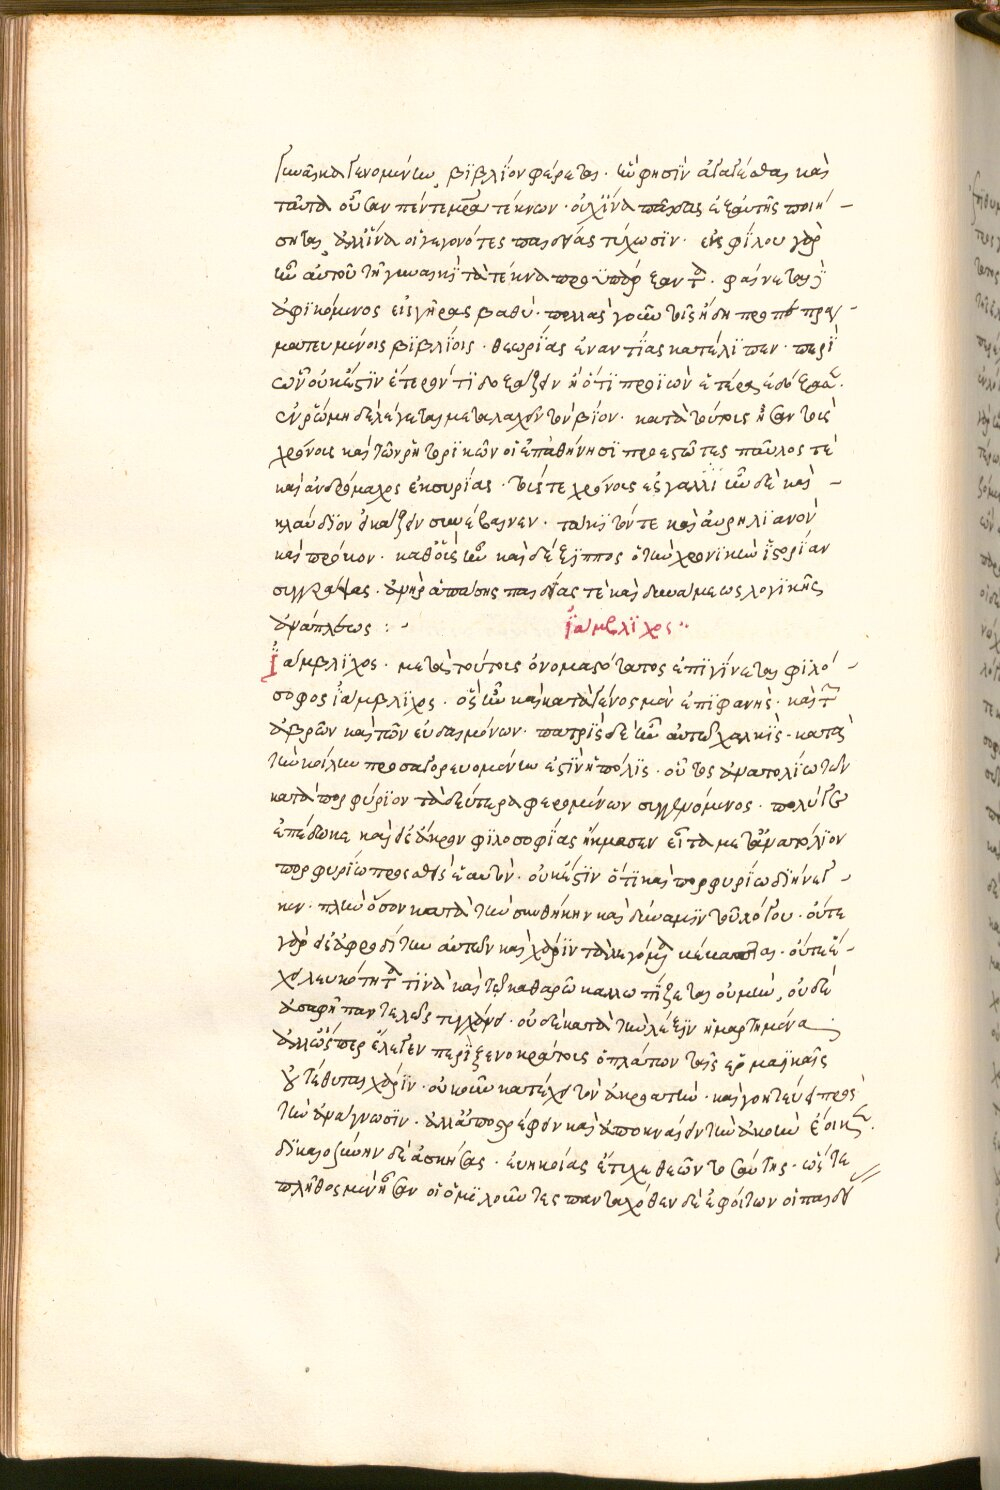 γυναῖκα γενομένων βϊβλίον φέρεται· ἣν φησὶν ἀγαγέσθαι καὶ
ταῦτα οὖσαν πέντε μητέρα τέκνων· οὐχ ἵνα παῖδας ἐξ αὐτῆς ποιή –
σηται, ἀλλ' ἵνα οἱ γεγονότες παιδείας τύχωσϊν· ἐκ φίλου γὰρ
ἦν αὐτοῦ τῇ γυναικῒ τὰ τέκνα προϋπάρξαντα. φαίνεται
ἀφϊκόμενος εἰς γῆρας βαθύ· πολλὰς γοῦν τοῖς ἤδη προπεπραγ –
ματευμένοις βϊβλίοις· θεωρίας ἐναντίας κατέλϊπεν· περῒ
ὧν οὐκ ἔςϊν ἕτερόν τϊ δοξάζειν ἢ ὅτϊ προϊὼν ἕτερα ἐδόξασεν.
ἐν ῥώμῃ δὲ λέγεται μεταλαχεῖν τὸν βίον· κατὰ τούτους ἦσαν τοὺς
χρόνους καὶ τῶν ῥητορϊκῶν οἱ ἐπ' ἀθήνησϊ προεςῶτες παῦλος τὲ
καὶ ἀνδρόμαχος ἐκ συρίας· τούς τε χρόνους ἐς γαλλϊῆνόν δὲ καὶ –
κλαύδϊον εἰκάζειν συνέβαινεν· τάκϊτόν τε καὶ αὐρηλϊανὸν
καὶ πρόκον· καθ' οὓς ἦν καὶ δέξϊππος ὁ τὴν χρονϊκὴν ἱςορίαν
συγγράψας· ἀνὴρ ἁπάσης παιδείας τὲ καὶ δυνάμεως λογϊκῆς
ἀνάπλεως : ·
ἰάμβλϊχος ··
Ἰάμβλϊχος· μετὰ τούτους ὀνομαςότατος ἐπϊγίνεται φϊλό –
σοφος ἰάμβλϊχος· ὃς ἦν καὶ κατὰ γένος μὲν ἐπϊφανὴς· καὶ τῶν
ἁβρῶν καὶ τῶν εὐδαιμόνων· πατρὶς δὲ ἦν αὐτῷ χαλκΐς· κατὰ
τὴν κοίλην προσαγορευομένην ἐςῒν ἡ πόλϊς· οὗτος ἀνατολίω τῶν
κατὰ πορφύρϊον τὰ δεύτερα φερομένων συγγενόμενος· πολύ γε
ἐπέδωκε καὶ εἰς ἄκρον φϊλοσοφίας ἤκμασεν εἶτα μετ' ἀνατόλϊον
πορφυρίω προσθεὶς ἑαυτὸν· οὐκ ἔςϊν ὅτϊ καὶ πορφυρίω δϊήνεγ –
κεν· πλὴν ὅσον κατὰ τὴν συνθήκην καὶ δύναμϊν τοῦ λόγου· οὔτε
γὰρ εἰς ἀφροδίτην αὐτῶν καὶ χάρϊν τὰ λεγόμενα κέκραται· οὔτε ἔ –
χει λευκότητα τϊνὰ καὶ τῷ καθαρῷ καλλωπίζεται οὐμὴν, οὐδὲ
ἀσαφῆ παντελῶς τυγχάνει· οὐδὲ κατὰ τὴν λέξϊν ἡμαρτημένα
ἀλλ' ὥσπερ ἔλεγεν περῒ ξενοκράτους ὁ πλάτων ταῖς ἑρμαϊκαῖς
οὐ τέθυται χάρϊν· οὔκουν κατέχει τὸν ἀκροατὴν· καὶ γοητεύει πρὸς
τὴν ἀνάγνωσϊν· ἀλλ' ἀποςρέφειν καὶ ἀποκναίειν τὴν ἀκοὴν ἔοικεν.
δϊκαιοσύνην δὲ ἀσκήσας· εὐηκοίας ἔτυχε θεῶν τοσαύτης· ὥστε
πλῆθος μὲν ἦσαν οἱ ὁμϊλοῦντες πανταχόθεν δὲ ἐφοίτων οἱ παιδεί